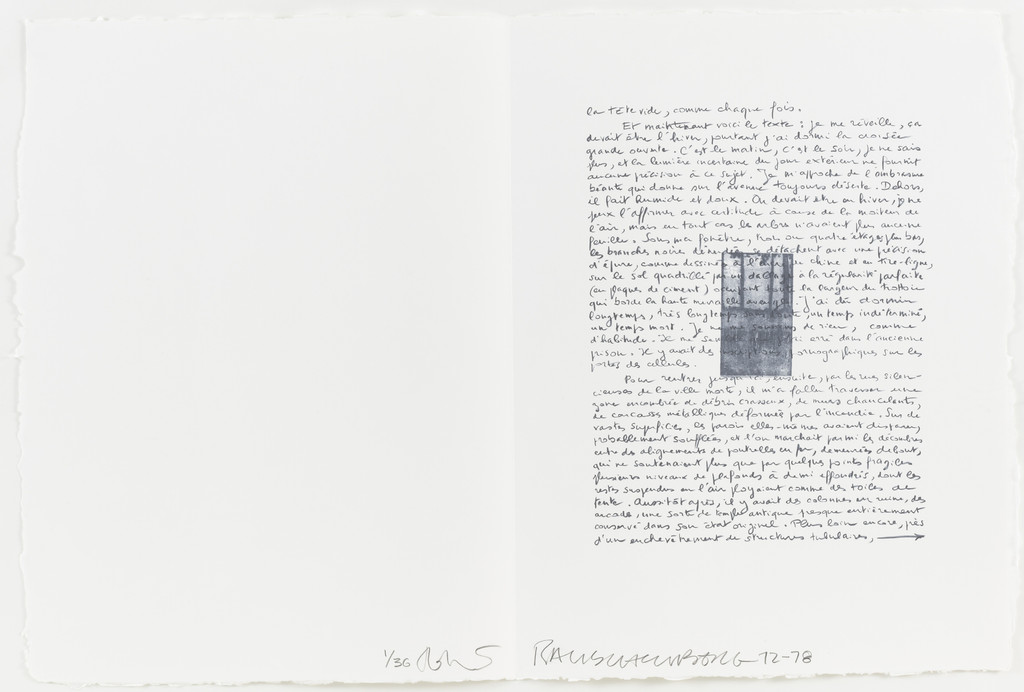 la tête vide, comme chaque fois.
Et maintenant voici le texte : je me réveille, ça
devait être l'hiver, pourtant j'ai dormi la croisée
grande ouverte. C'est le matin, c'est le soir, je ne sais
plus, et la lumière incertaine du jour extérieur ne fournit
aucune précision à ce sujet. Je m'approche de l'embrasure
béante qui donne sur l'avenue toujours déserte. Dehors,
il fait humide et doux. On devait être en hiver, je ne
peux l'affirmer avec certitude à cause de la moiteur de
l'air, mais en tout cas les arbres n'avaient plus aucune
feuille. Sous ma fenêtre, trois ou quatre étages plus bas,
les branches noires dénudées se détachent avec une précision
d'épure, comme dessinées à l'encre de chine et au tire-ligne,
sur le sol quadrillé par un dallage à la régularité parfaite
(en plaques de ciment) occupant toute la largeur du trottoir
qui borde la haute muraille aveugle. J'ai dû dormir
longtemps, très longtemps sans doute, un temps indéterminé,
un temps mort. Je ne me souviens de rien, comme
d'habitude. Il me semble erré dans l'ancienne
prison. Il y avait des inscriptions pornographiques sur les
portes des cellules.
Pour rentrer jusqu'ici, ensuite, par les rues silen-
cieuses de la ville morte, il m'a fallu traverser une
zone encombrée de débris crasseux, de murs chancelants,
de carcasses métalliques déformées par l'incendie. Sur de
vastes superficies, les parois elles-mêmes avaient disparu,
probablement soufflées, et l'on marchait parmi les décombres
entre des alignements de poutrelles en fer, demeurées debout,
qui ne soutenaient plus que par quelques points fragiles
plusieurs niveaux de plafonds à demi effondrés, dont les
restes suspendus en l'air ployaient comme des toiles de
tente. Aussitôt après, il y avait des colonnes en ruine, des
arcades, une sorte de temple antique presque entièrement
conservé dans son état originel. Plus loin encore, près
d'un enchevêtrement de structures tubulaires, →
1/36 RAUSCHENBERG 72-78